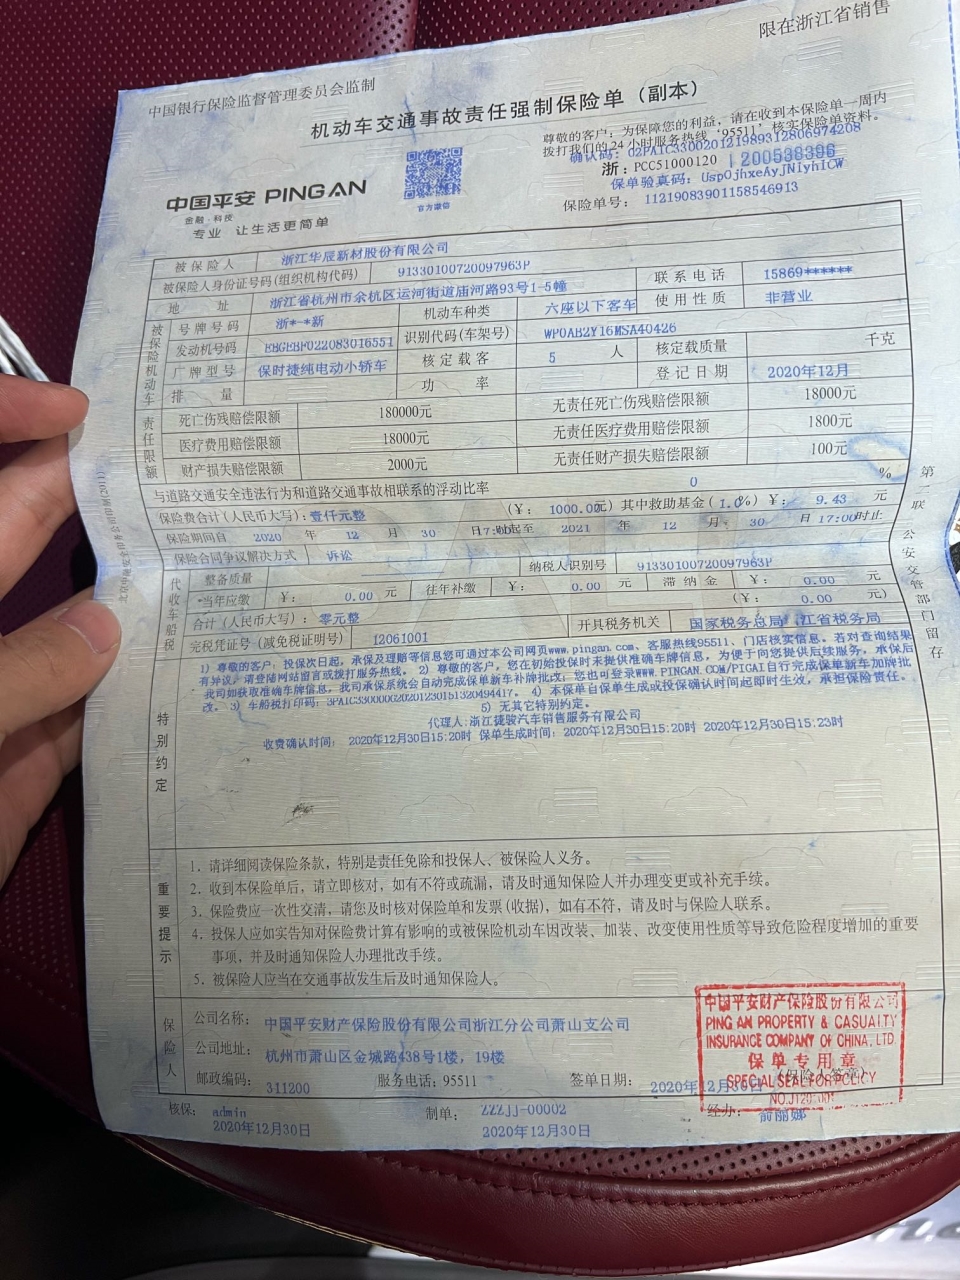 限在浙江省销售
中国银行保险监督管理委员会监制
机动车交通事故责任强制保险单（副本）
尊敬的客户：为保障您的利益，请在收到本保险单一周内
拨打我们的24小时服务热线“95511”核实保险单资料。
确认码：02PAIC330020121989312806974208
浙：PCC51000120 1200538396
保单验真码：UspOjhxeAyJNIyhICW
保险单号：11219083901158546913
中国平安 PING AN
金融·科技
专业 让生活更简单
官方微信
被保险人 浙江华辰新材股份有限公司
被保险人身份证号码(组织机构代码) 91330100720097963P
地址 浙江省杭州市余杭区运河街道庙河路93号1-5幢 联系电话 15869******
被保险机动车
号牌号码 浙*-*新 机动车种类 六座以下客车 使用性质 非营业
发动机号码 EBGEBF022083016551 识别代码(车架号) WP0AB2Y16MSA40426
厂牌型号 保时捷纯电动小轿车 核定载客 5 人 核定载质量 千克
排量 功率 登记日期 2020年12月
责任限额
死亡伤残赔偿限额 180000元 无责任死亡伤残赔偿限额 18000元
医疗费用赔偿限额 18000元 无责任医疗费用赔偿限额 1800元
财产损失赔偿限额 2000元 无责任财产损失赔偿限额 100元
与道路交通安全违法行为和道路交通事故相联系的浮动比率 0 %
保险费合计(人民币大写)：壹仟元整 (￥： 1000.00元) 其中救助基金(1.0%) ￥： 9.43 元
保险期间自 2020 年 12 月 30 日17:00时起至 2021 年 12 月 30 日 17:00时止
保险合同争议解决方式 诉讼
代收车船税
整备质量 纳税人识别号 91330100720097963P
*当年应缴 ￥： 0.00 元 往年补缴 ￥： 0.00 元 滞纳金 ￥： 0.00 元
合计(人民币大写)： 零元整 (￥： 0.00 元)
完税凭证号(减免税证明号) 12061001 开具税务机关 国家税务总局浙江省税务局
特别约定
1) 尊敬的客户：投保次日起，承保及理赔等信息您可通过本公司网页www.pingan.com、客服热线95511、门店核实信息。若对查询结果
有异议，请登陆网站留言或拨打服务热线。2) 尊敬的客户，您在初始投保时未提供准确车牌信息，为便于向您提供后续服务，承保后
我司如获取准确车牌信息，我司承保系统会自动完成保单新车补牌批改；您也可登录WWW.PINGAN.COM/PIGAI自行完成保单新车加牌批
改。3) 车船税打印码：3PAIC330000G2020123015132049441７。4) 本保单自保单生成或投保确认时间起即时生效，承担保险责任。
5) 无其它特别约定。
代理人:浙江捷骏汽车销售服务有限公司
收费确认时间： 2020年12月30日15:20时 保单生成时间：2020年12月30日15:20时 2020年12月30日15:23时
重要提示
1. 请详细阅读保险条款，特别是责任免除和投保人、被保险人义务。
2. 收到本保险单后，请立即核对，如有不符或疏漏，请及时通知保险人并办理变更或补充手续。
3. 保险费应一次性交清，请您及时核对保险单和发票(收据)，如有不符，请及时与保险人联系。
4. 投保人应如实告知对保险费计算有影响的或被保险机动车因改装、加装、改变使用性质等导致危险程度增加的重要
事项，并及时通知保险人办理批改手续。
5. 被保险人应当在交通事故发生后及时通知保险人。
保险人
公司名称： 中国平安财产保险股份有限公司浙江分公司萧山支公司
公司地址： 杭州市萧山区金城路438号1楼，19楼
邮政编码： 311200 服务电话：95511 签单日期： 2020年12月30日 (保险人签章)
中国平安财产保险股份有限公司
PING AN PROPERTY & CASUALTY
INSURANCE COMPANY OF CHINA, LTD.
保单专用章
SPECIAL SEAL FOR POLICY
核保： admin 制单： ZZZJJ-00002 经办： 俞丽娜
2020年12月30日 2020年12月30日
第一联 公安交管部门留存